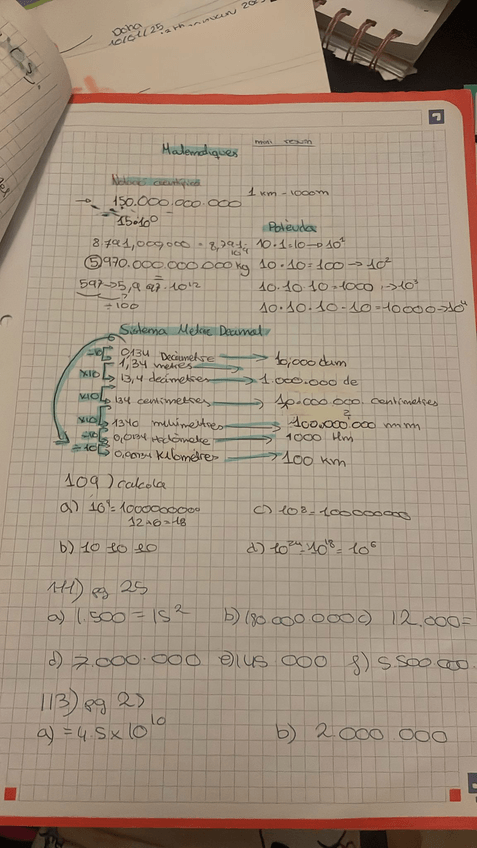 Doha
10/01/25
Matemàtiques mini resum
Notació científica
150.000.000.000 1 km - 1000m
15·10⁰
Potències
8.791,000,000 = 8,791· 10·1=10→10¹
5970.000.000.000 kg 10·10=100→10²
597→5,9 97·10¹² 10·10·10=1000→10³
÷100 10·10·10·10=10000→10⁴
Sistema Metric Decimal
÷10 0,134 Decàmetre → 10,000 dam
1,34 metres →
x10 13,4 decimetres → 1.000.000 de
x10 134 centimetres → 10.000.000 centimetres
x10 1340 milimetres → 100.000.000 mm
÷10 0,0134 Hectòmetre → 1000 Hm
÷10 0,00134 Kilometres → 100 km
109) calcola
a) 10⁹=1000000000 c) 10⁸=100000000
12+6=18
b) 10 10 10 d) 10²⁴-10¹⁸=10⁶
111) pg 25
a) 1.500=15² b) 180 000.000 c) 12.000=
d) 7.000.000 e) 145 000 f) 5.500.000.
113) pg 25
a) =4.5x10¹⁰ b) 2.000.000